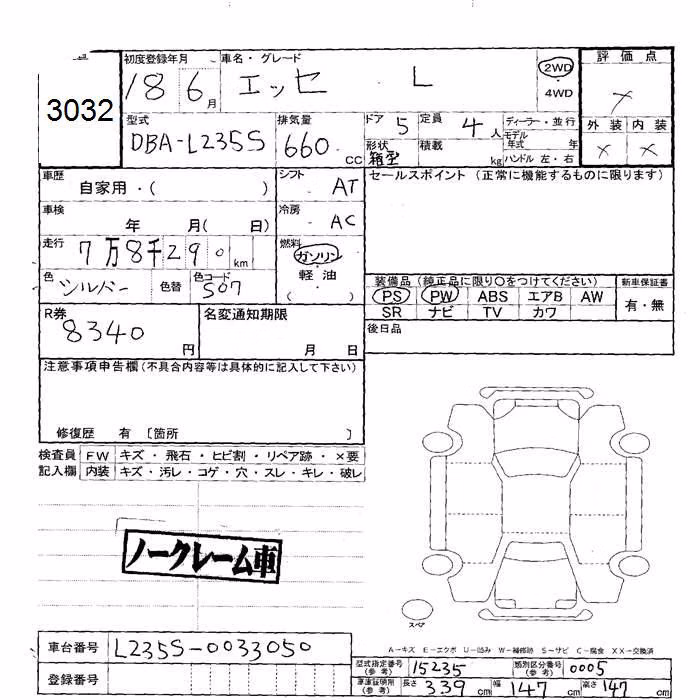 3032
初度登録年月
18 6月
車名・グレード
エッセ L
2WD
4WD
評価点
外装 内装
× ×
型式
DBA-L235S
排気量
660 CC
ドア 5
定員 4人
ディーラー・並行
モデル年式 年
形状 箱型
積載 kg
ハンドル 左・右
車歴
自家用・( )
シフト AT
セールスポイント(正常に機能するものに限ります)
車検
年 月( 日)
冷房 AC
走行
7万8千290km
燃料
ガソリン
軽油
( )
色 シルバー 色替
色コード S07
装備品(純正品に限り〇をつけてください)
PS PW ABS エアB AW
SR ナビ TV カワ
新車保証書
有・無
R券
8340円
名変通知期限
月 日
後日品
注意事項申告欄(不具合内容等は具体的に記入して下さい)
修復歴 有 〔箇所 〕
検査員記入欄
FW キズ・飛石・ヒビ割・リペア跡・×要
内装 キズ・汚レ・コゲ・穴・スレ・キレ・破レ
ノークレーム車
スペア
A-キズ E-エクボ U-凹み W-補修跡 S-サビ C-腐食 XX-交換済
車台番号 L235S-0033050
登録番号
型式指定番号(参考) 15235
類別区分番号(参考) 0005
車庫証明用(参考) 長さ 339cm 幅 147cm 高さ 147cm